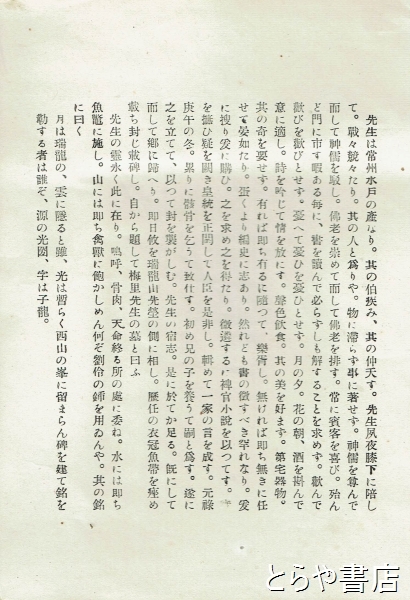 先生は常州水戸の產なり。其の伯疾み、其の仲天す。先生夙夜膝下に陪し
て。戰々兢々たり。其の人と爲りや。物に滯らず事に著せず。神儒を尊んで
而して神儒を駁し。佛老を崇めて而して佛老を排す。常に賓客を喜び。殆ん
ど門に市す暇ある每に、書を讀んで必らずしも解することを求めず。歡んで
歡びを歡びとせず。憂へて憂ひを憂ひとせず。月の夕。花の朝、酒を斟んで
意に適し。詩を吟じて情を放にす。聲色飮食。其の美を好ます。第宅器物。
其の奇を要せず。有れば即ち有るに隨つて、樂胥し。無ければ即ち無きに任
せて晏如たり。蚤くより編史に志あり。然れども書の徵すべき罕れなり。爰
に捜り爰に購ひ。之を求め之を得たり。微遴するに稗官小說を以つてす。實
を摭ひ疑を闕き皇統を正閏して人臣を是非し。輯めて一家の言を成す。元祿
庚午の冬。累りに骸骨を乞うて致仕す。初め兄の子を養うて嗣と爲す。遂に
之を立てて、以つて封を襲がしむ。先生の宿志。是に於てか足る。既にして
而して鄕に歸へり。即日攸を瑞龍山先塋の側に相し。歷任の衣冠魚帶を瘞め
載ち封じ載碑し。自から題して梅里先生の墓と曰ふ
先生の靈永く此に在り。嗚呼、骨肉、天命終る所の處に委ね。水には即ち
魚鼈に施し。山には即ち禽獸に飽かしめん何ぞ劉伶の鍤を用ゐんや。其の銘
に曰く
月は瑞龍の、雲に隱ると雖、光は暫らく西山の峯に留まらん碑を建て銘を
勒する者は誰ぞ、源の光圀、字は子龍。
とらや書店